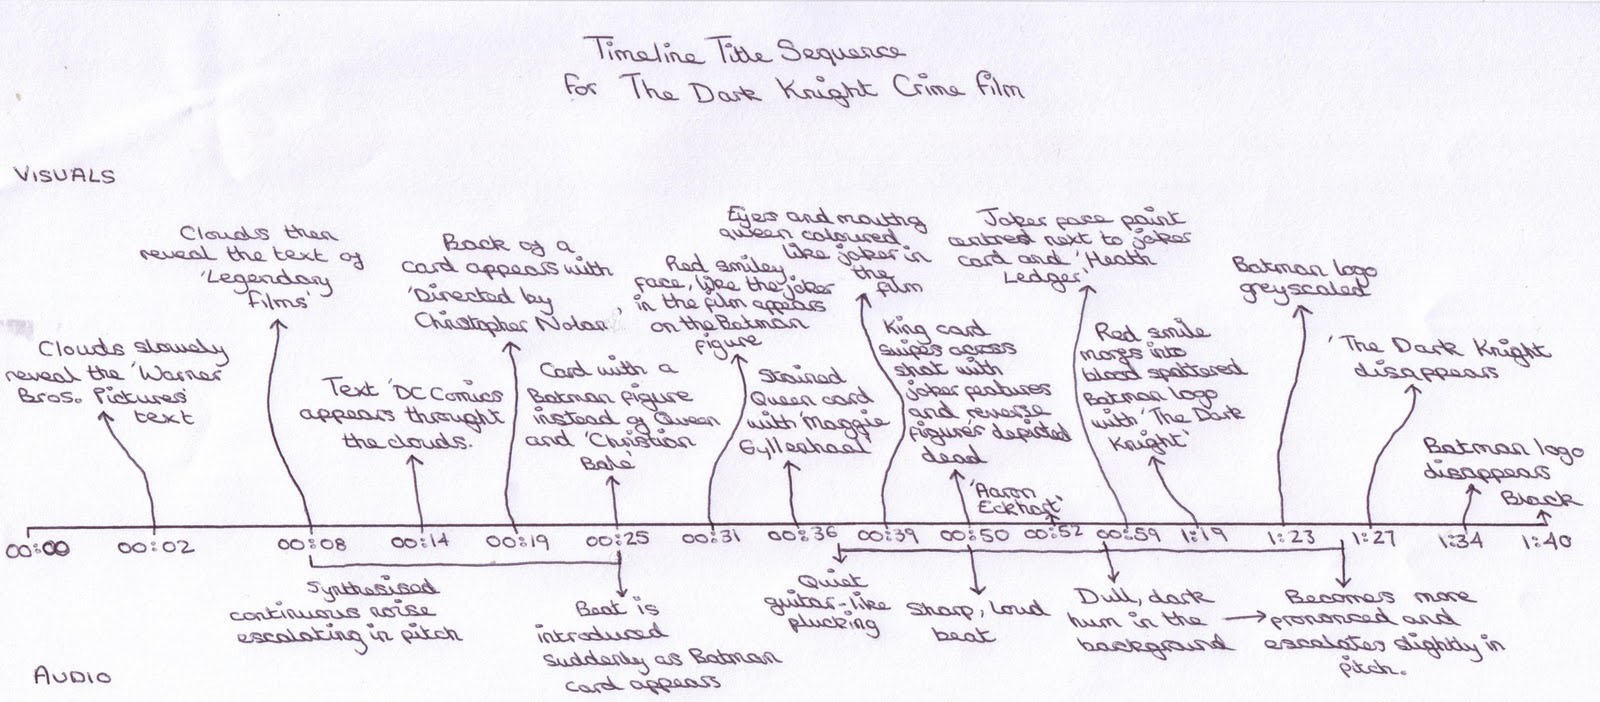 Timeline Title Sequence
for The Dark Knight Crime film
VISUALS
Clouds slowely
reveal the 'Warner
Bros. Pictures'
text
Clouds then
reveal the text of
'Legendary
films'
Text 'DC Comics
appears throught
the clouds.
Back of a
card appears with
'Directed by
Christopher Nolan'
Card with a
Batman figure
instead of Queen
and 'Christian
Bale'
Red smiley
face, like the joker
in the film appears
on the Batman
figure
Strained
Queen card
with 'Maggie
Gyllenhaal'
Eyes and mouth of
queen coloured
like joker in
the
film
King card
swipes across
shot with
joker features
and reverse
figure's depicted
dead
'Aaron
Eckhart'
Joker face paint
centred next to joker
card and 'Heath
Ledger'
Red smile
morps into
blood spattored
Batman logo
with 'The Dark
Knight'
Batman logo
greyscaled
'The Dark Knight
disappears
Batman logo
disappears
Black
00:00 00:02 00:08 00:14 00:19 00:25 00:31 00:36 00:39 00:50 00:52 00:59 1:19 1:23 1:27 1:34 1:40
Synthesised
continuous noise
escalating in pitch
Beat is
introduced
suddenly as Batman
card appears
Quiet
guitar-like
plucking
Sharp, loud
beat
Dull, dark
hum in the
background
Becomes more
pronounced and
escalates slightly in
pitch.
AUDIO